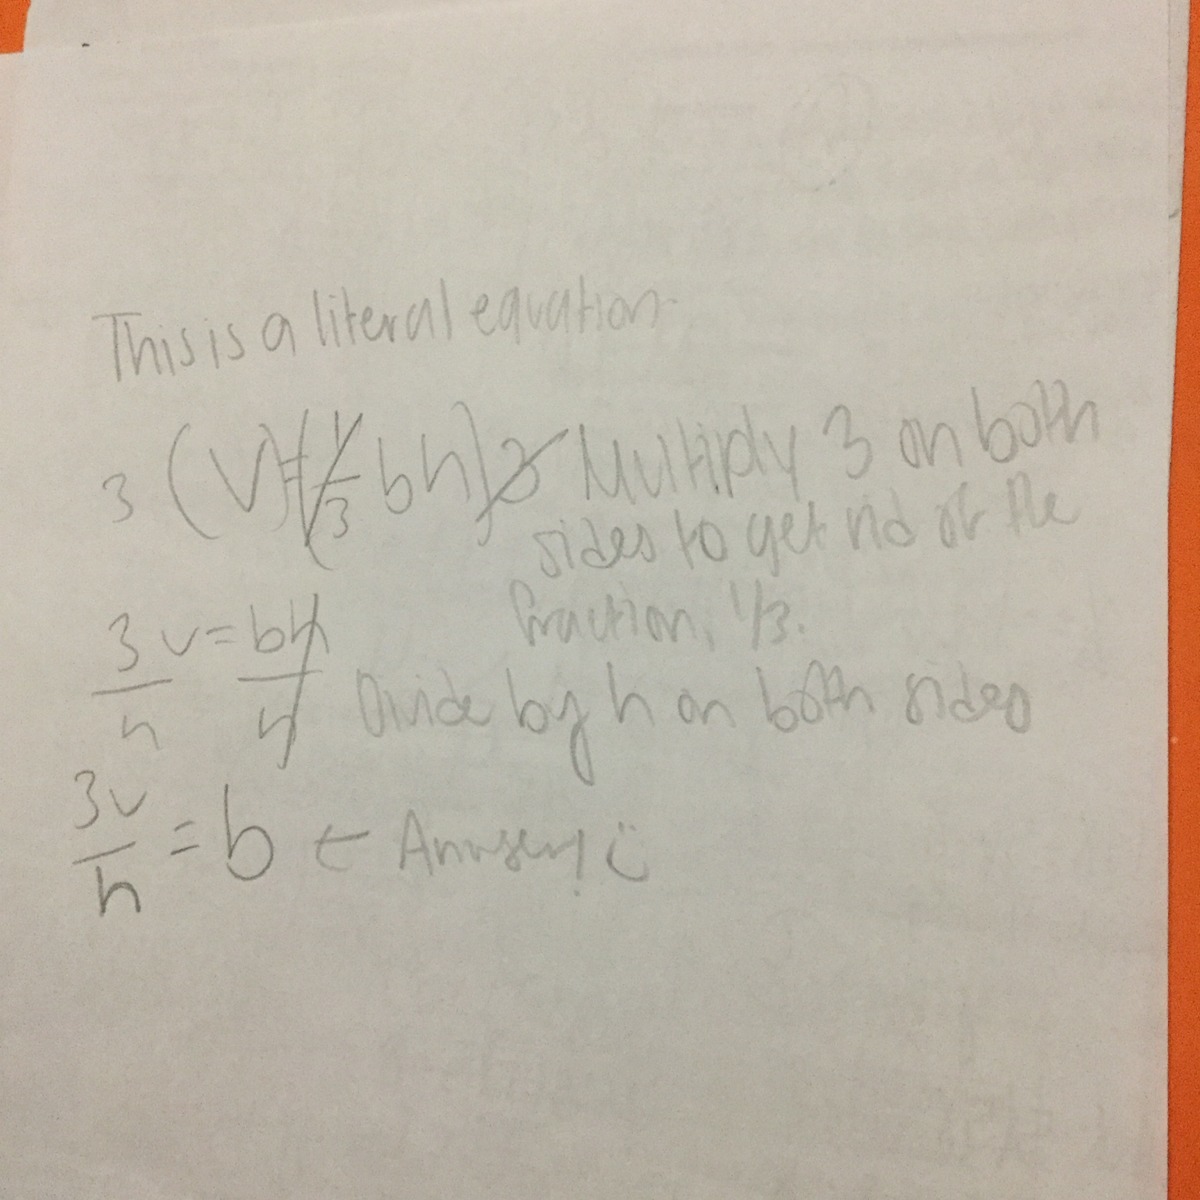 This is a literal equation.
3 (V)=(1/3 bh)3 Multiply 3 on both
sides to get rid of the
fraction, 1/3.
3v/h = bh/h Divide by h on both sides
3v/h = b ← Answer! :)